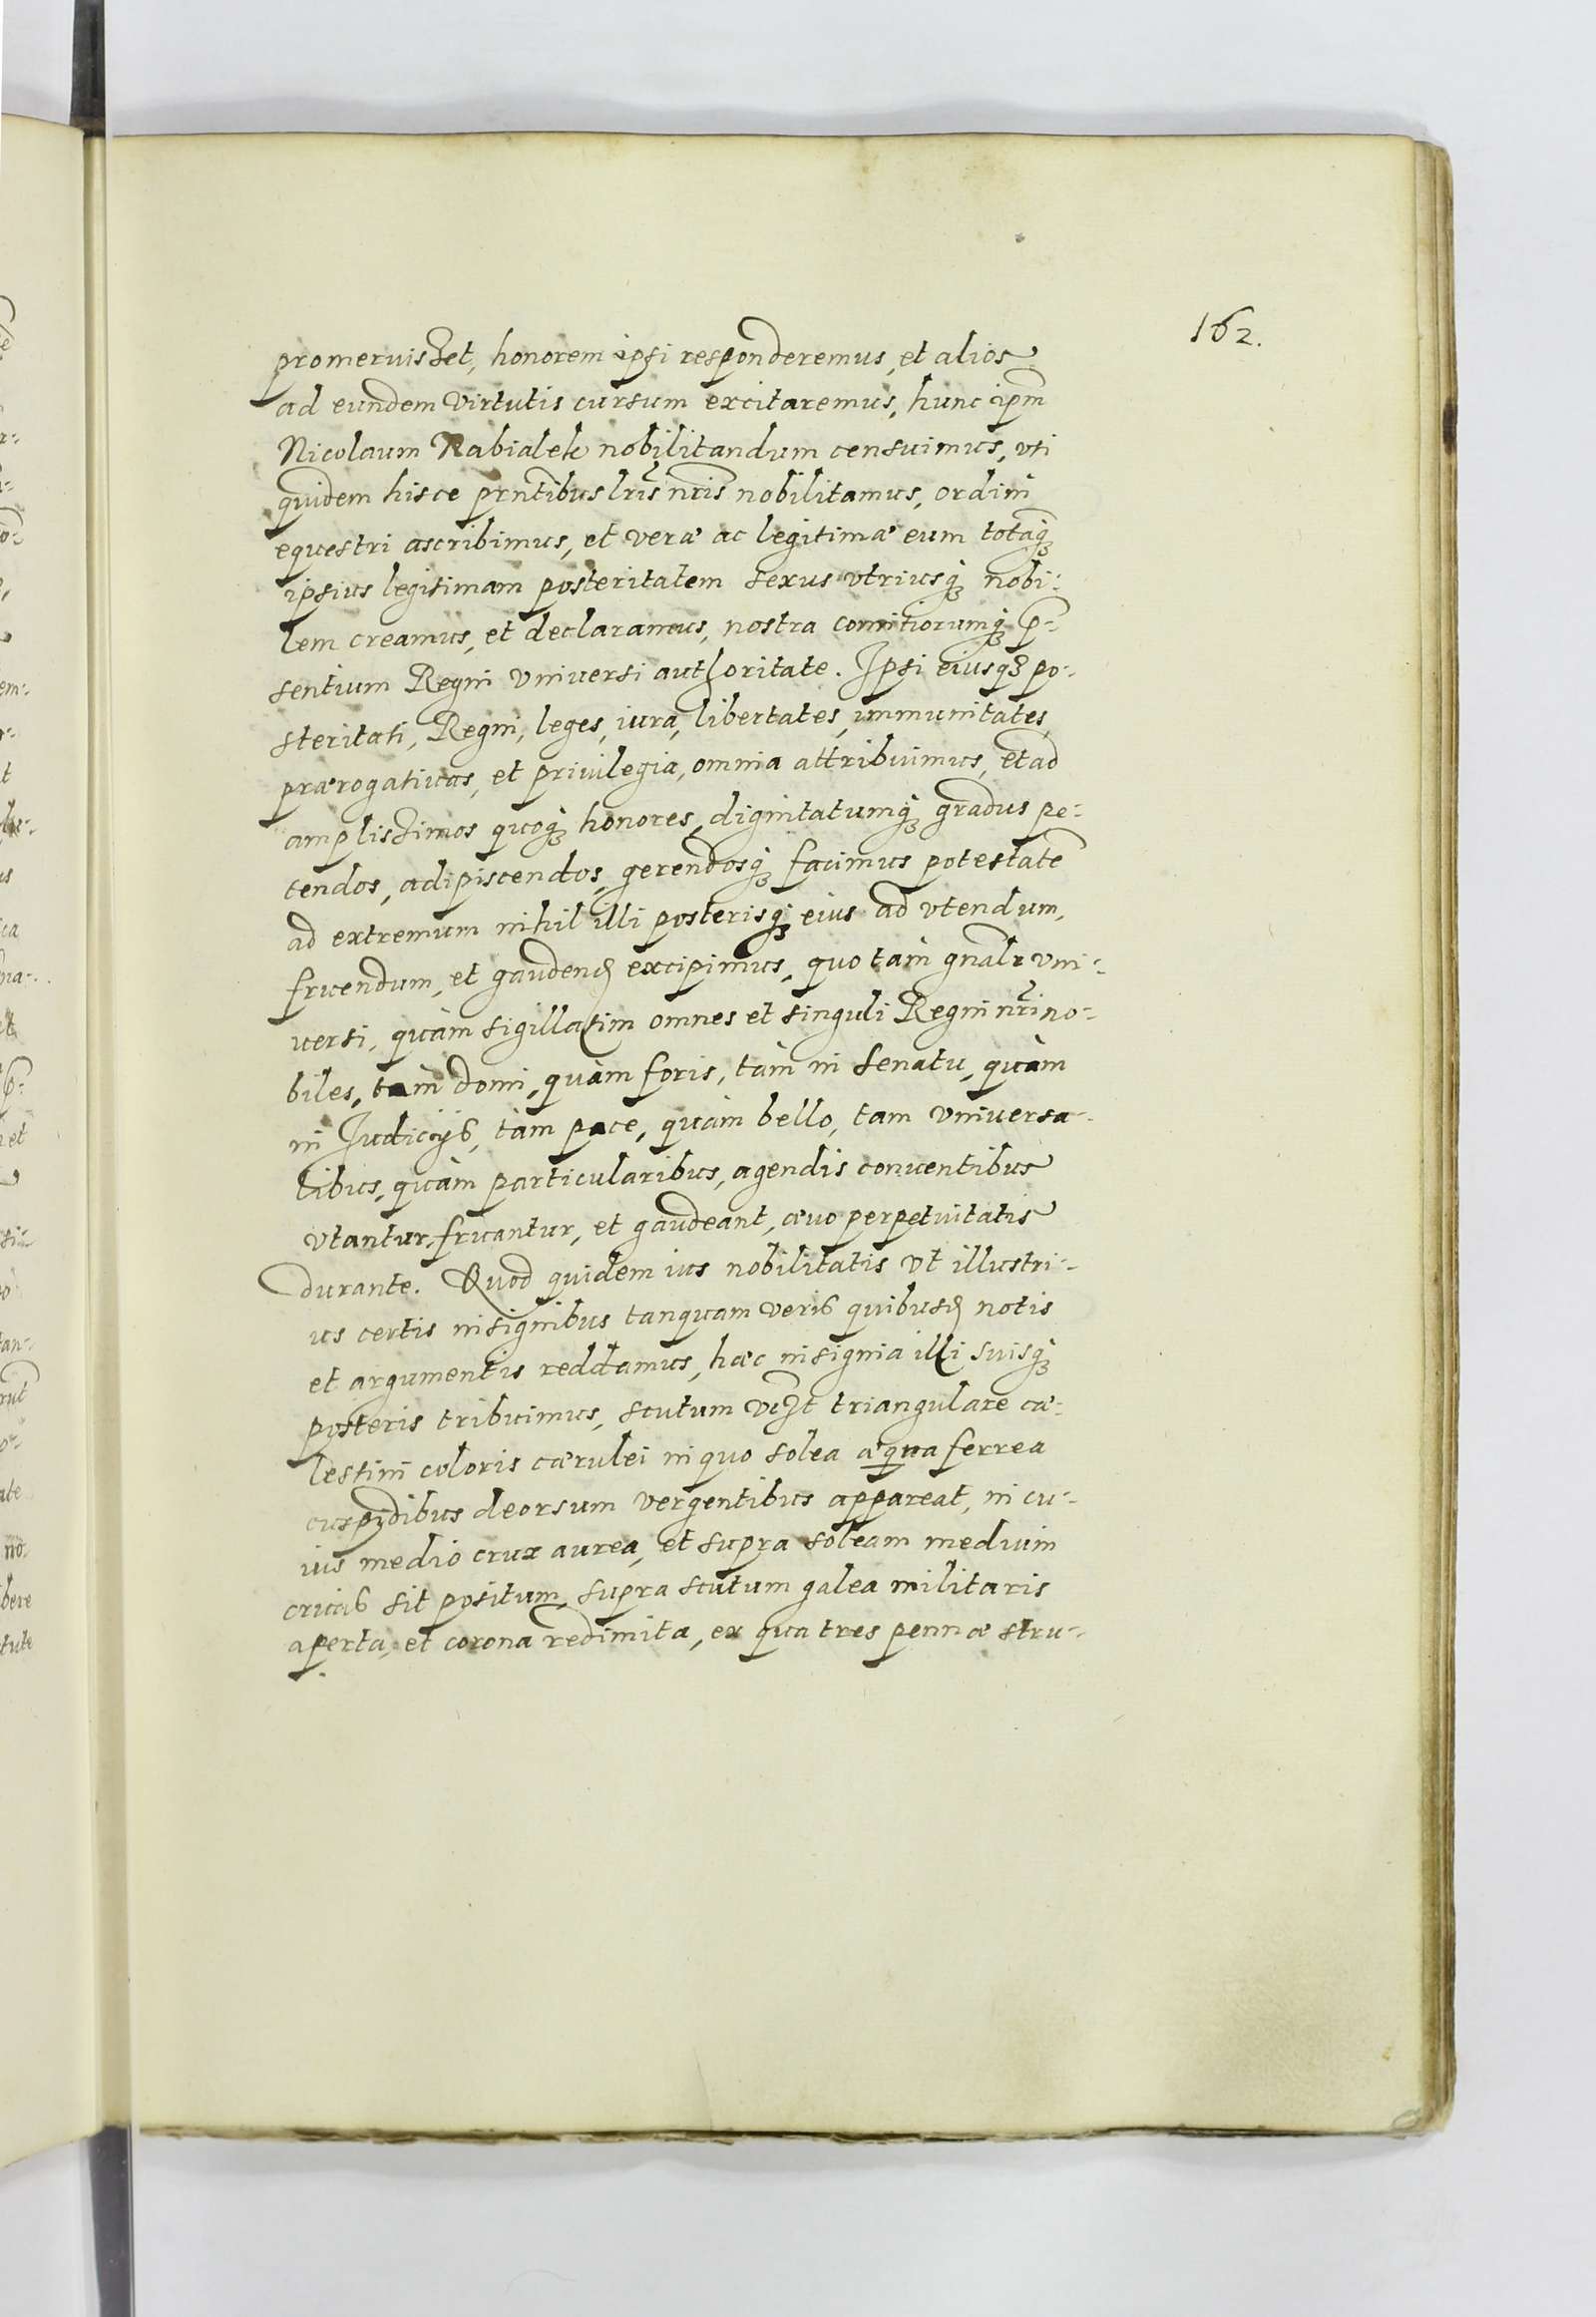 162.
promeruisset, honorem ipsi responderemus, et alios
ad eundem virtutis cursum excitaremus, hunc ipm̃
Nicolaum Nabialek nobilitandum censuimus, vti
quidem hisce prñtibus lr̃is nr̃is nobilitamus, ordini
equestri ascribimus, et veræ ac legitimæ eum totamq;
ipsius legitimam posteritatem sexus vtriusq; nobi-
lem creamus, et declaramus, nostra comitiorumq; p̃-
sentium Regni vniuersi authoritate. Ipsi eiusq; po-
steritati, Regni, leges, iura, libertates, immunitates
prærogatiuas, et priuilegia, omnia attribuimus, et ad
amplissimos quoq; honores, dignitatumq; gradus pe-
tendos, adipiscendos, gerendosq; facimus potestatẽ
ad extremum nihil illi posterisq; eius ad vtendum,
fruendum, et gaudend excipimus, quo tàm gnalr vni-
uersi, quàm sigillatim omnes et singuli Regni nr̃i no-
biles, tàm domi, quàm foris, tàm in senatu, quàm
in Judicijs, tàm pace, quàm bello, tam vniuersa-
libus, quàm particularibus, agendis conuentibus
vtantur, fruantur, et gaudeant, æuo perpetuitatis
durante. Quod quidem ius nobilitatis vt illustri-
us certis insignibus tanquam veris quibusd notis
et argumentis reddamus, hæc insignia illi suisq;
posteris tribuimus, scutum vczt triangulare cæ-
lestini coloris cærulei in quo solea æqua ferrea
cuspidibus deorsum vergentibus appareat, in cu-
ius medio crux aurea, et supra soleam medium
crucis sit positum, supra scutum galea militaris
aperta, et corona redimita, ex qua tres pennæ stru-